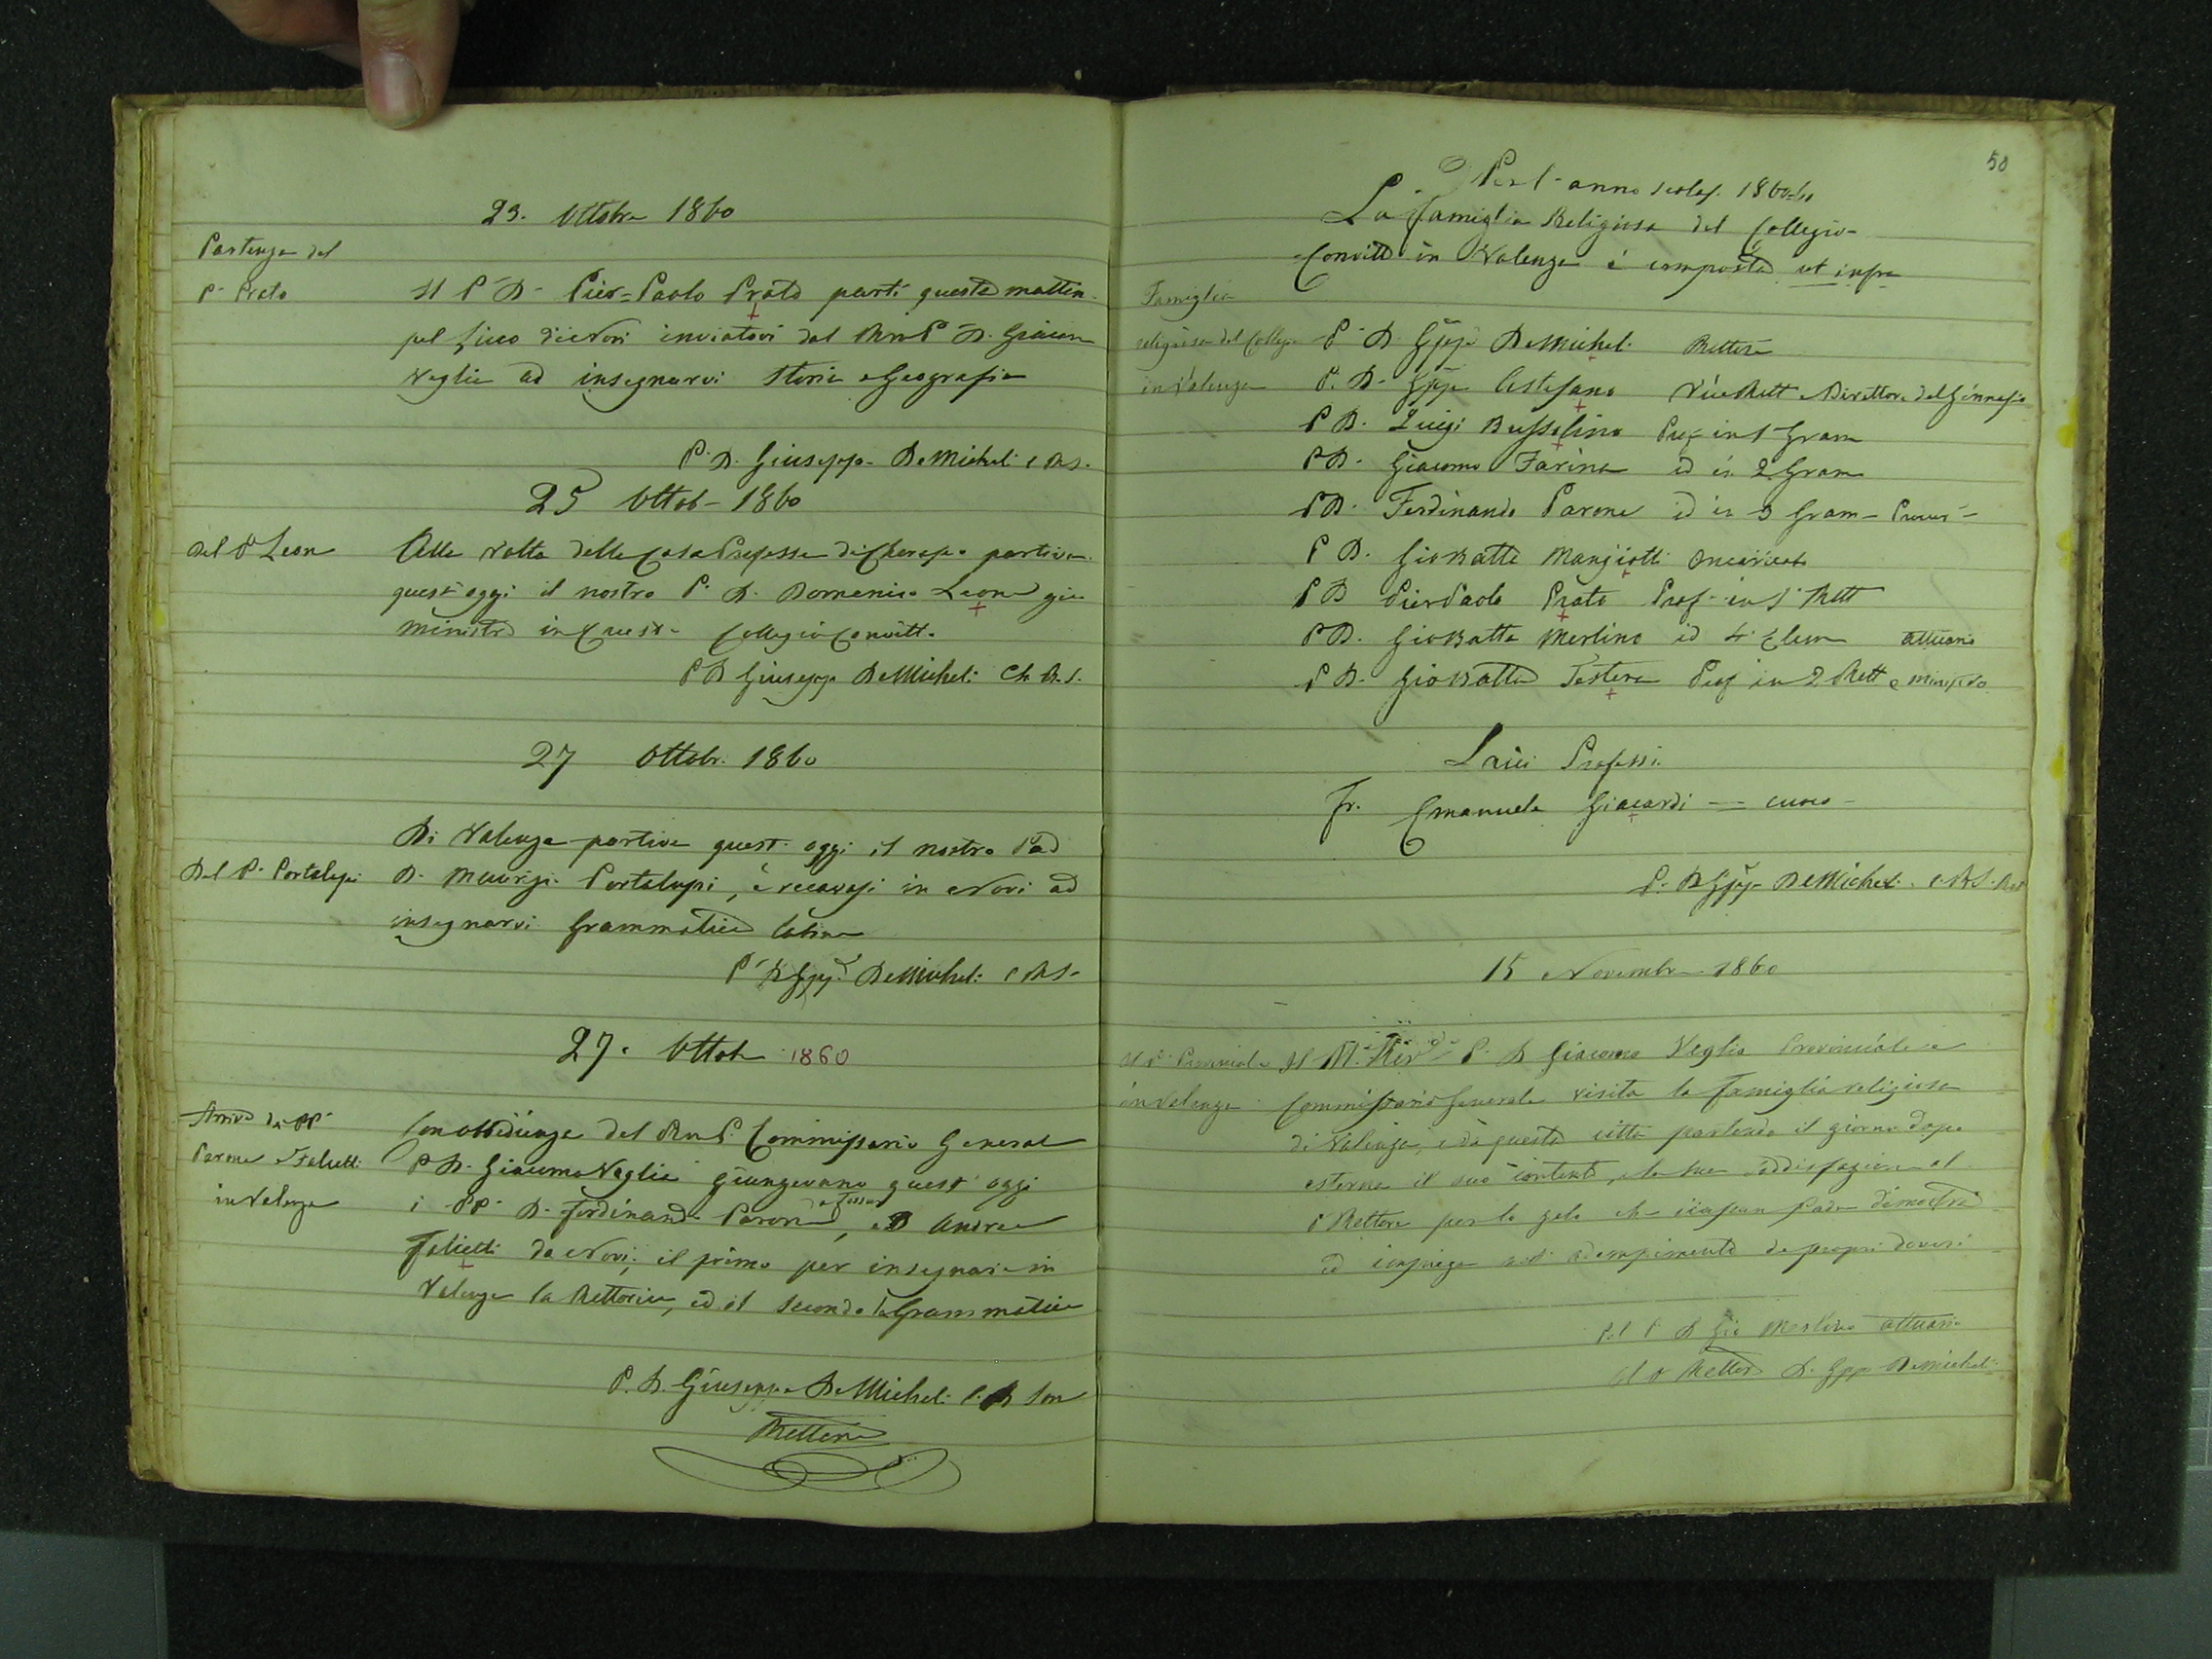 23. Ottobre 1860
Partenza del
P. Prato
Il P. D. Pier=Paolo Prato partì questa mattina
pel Liceo di Novi inviatovi dal Rmo P. D. Giacomo
Veglia ad insegnarvi Storia e Geografia
P. D. Giuseppe DeMicheli C.R.S.
25 Ottob- 1860
Del P Leone
Alla volta della Casa Professa di Cherasco partiva
quest'oggi il nostro P. D. Domenico Leone già
ministro in questo Collegio Convitto
P D Giuseppe DeMicheli Ch. R. S.
27 Ottobr. 1860
Di Valenza partiva quest'oggi il nostro Pad
Del P. Portalupi
D. Maurizi. Portalupi, e recavasi in Novi ad
insegnarvi Grammatica latina
P. D Gppe. DeMicheli C R S-
27. Ottob 1860
Arrivo dei PP.
Parone e Falietti
in Valenza
Con obbidienza del Rmo P. Commissario General
P D. Giacomo Veglia giungevano quest'oggi
i PP. D. Ferdinando Parone, e D Andrea
Falietti da Novi; il primo per insegnare in
Valenza la Rettorica, ed il secondo la Grammatica
P. D. Giuseppe DeMicheli C. R Som
Rettore
50
Per l'anno scolas. 1860=61
La famiglia Religiosa del Collegio-
Convitto in Valenza è composta ut infra
Famiglia
religiosa del Collegio
in Valenza
P. D. Gppe DeMicheli Rettore
P. D. Gppe Cestefano ViceRett e Direttore del Ginnasio
P D. Luigi Bussolino Prof in 1 Gram
P D. Giacomo Farina id in 2 Gram
P D. Ferdinando Parone id in 3 Gram-
P D. GioBatta Mangiotti
P D PierPaolo Prato Prof. in 1 Rett
P D. GioBatta Merlino id 4. Elem attuario
P D. GioBatta Testera Prof in 2 Rett e ministro
Laici Professi
Fr. Emanuele Giacardi — cuoco-
P. D Gppe DeMicheli. C.R.S. Ret
15 Novembre 1860
Il P. Provinciale
in Valenza
Il M. Rev.do P. D Giacomo Veglia Provinciale e
Commissario Generale visita la famiglia religiosa
di Valenza, e da questa città partendo il giorno dopo
esterna il suo contento, e la sua soddisfazione al
P Rettore per lo zelo che ciascun Padre dimostra
ed impiega nell'adempimento de proprii doveri
Pel P D Gio Merlino attuario
Il P Rettore D. Gpp DeMicheli